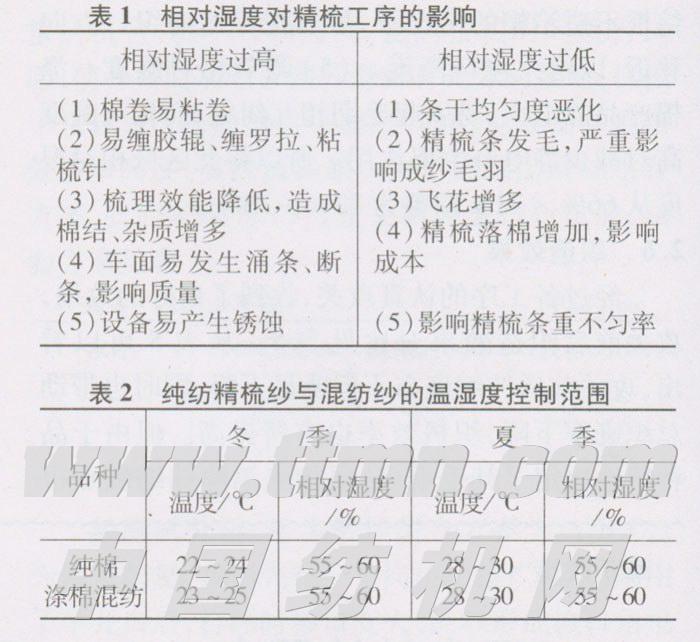 表1 相对湿度对精梳工序的影响
相对湿度过高 相对湿度过低
(1)棉卷易粘卷 (1)条干均匀度恶化
(2)易缠胶辊、缠罗拉、粘 (2)精梳条发毛,严重影
梳针 响成纱毛羽
(3)梳理效能降低,造成 (3)飞花增多
棉结、杂质增多 (4)精梳落棉增加,影响
(4)车面易发生涌条、断 成本
条,影响质量
(5)设备易产生锈蚀 (5)影响精梳条重不匀率
表2 纯纺精梳纱与混纺纱的温湿度控制范围
冬 季 夏 季
品种
温度/℃ 相对湿度 温度/℃ 相对湿度
/% /%
纯棉 22~24 55~60 28~30 55~60
涤棉混纺 23~25 55~60 28~30 55~60
www.ttmn.com
中国纺机网